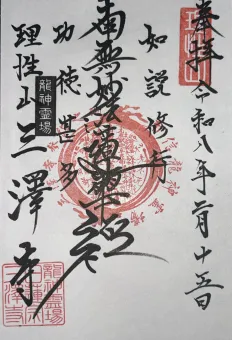 奉拝 令和八年月十五日
如説修行
南無妙法蓮華経
功徳甚多
龍神霊場
理性山三澤寺
理性山
龍神霊場
日蓮宗
三澤寺